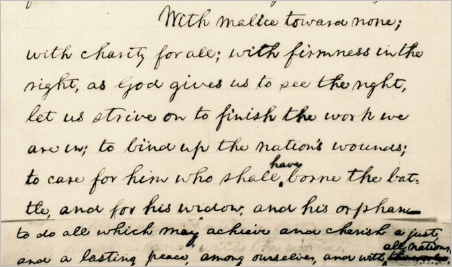 With malice toward none;
with charity for all; with firmness in the
right, as God gives us to see the right,
let us strive on to finish the work we
are in; to bind up the nation's wounds;
to care for him who shall have borne the bat-
tle, and for his widow, and his orphan
to do all which may achieve and cherish a just,
and a lasting peace, among ourselves, and with all nations,